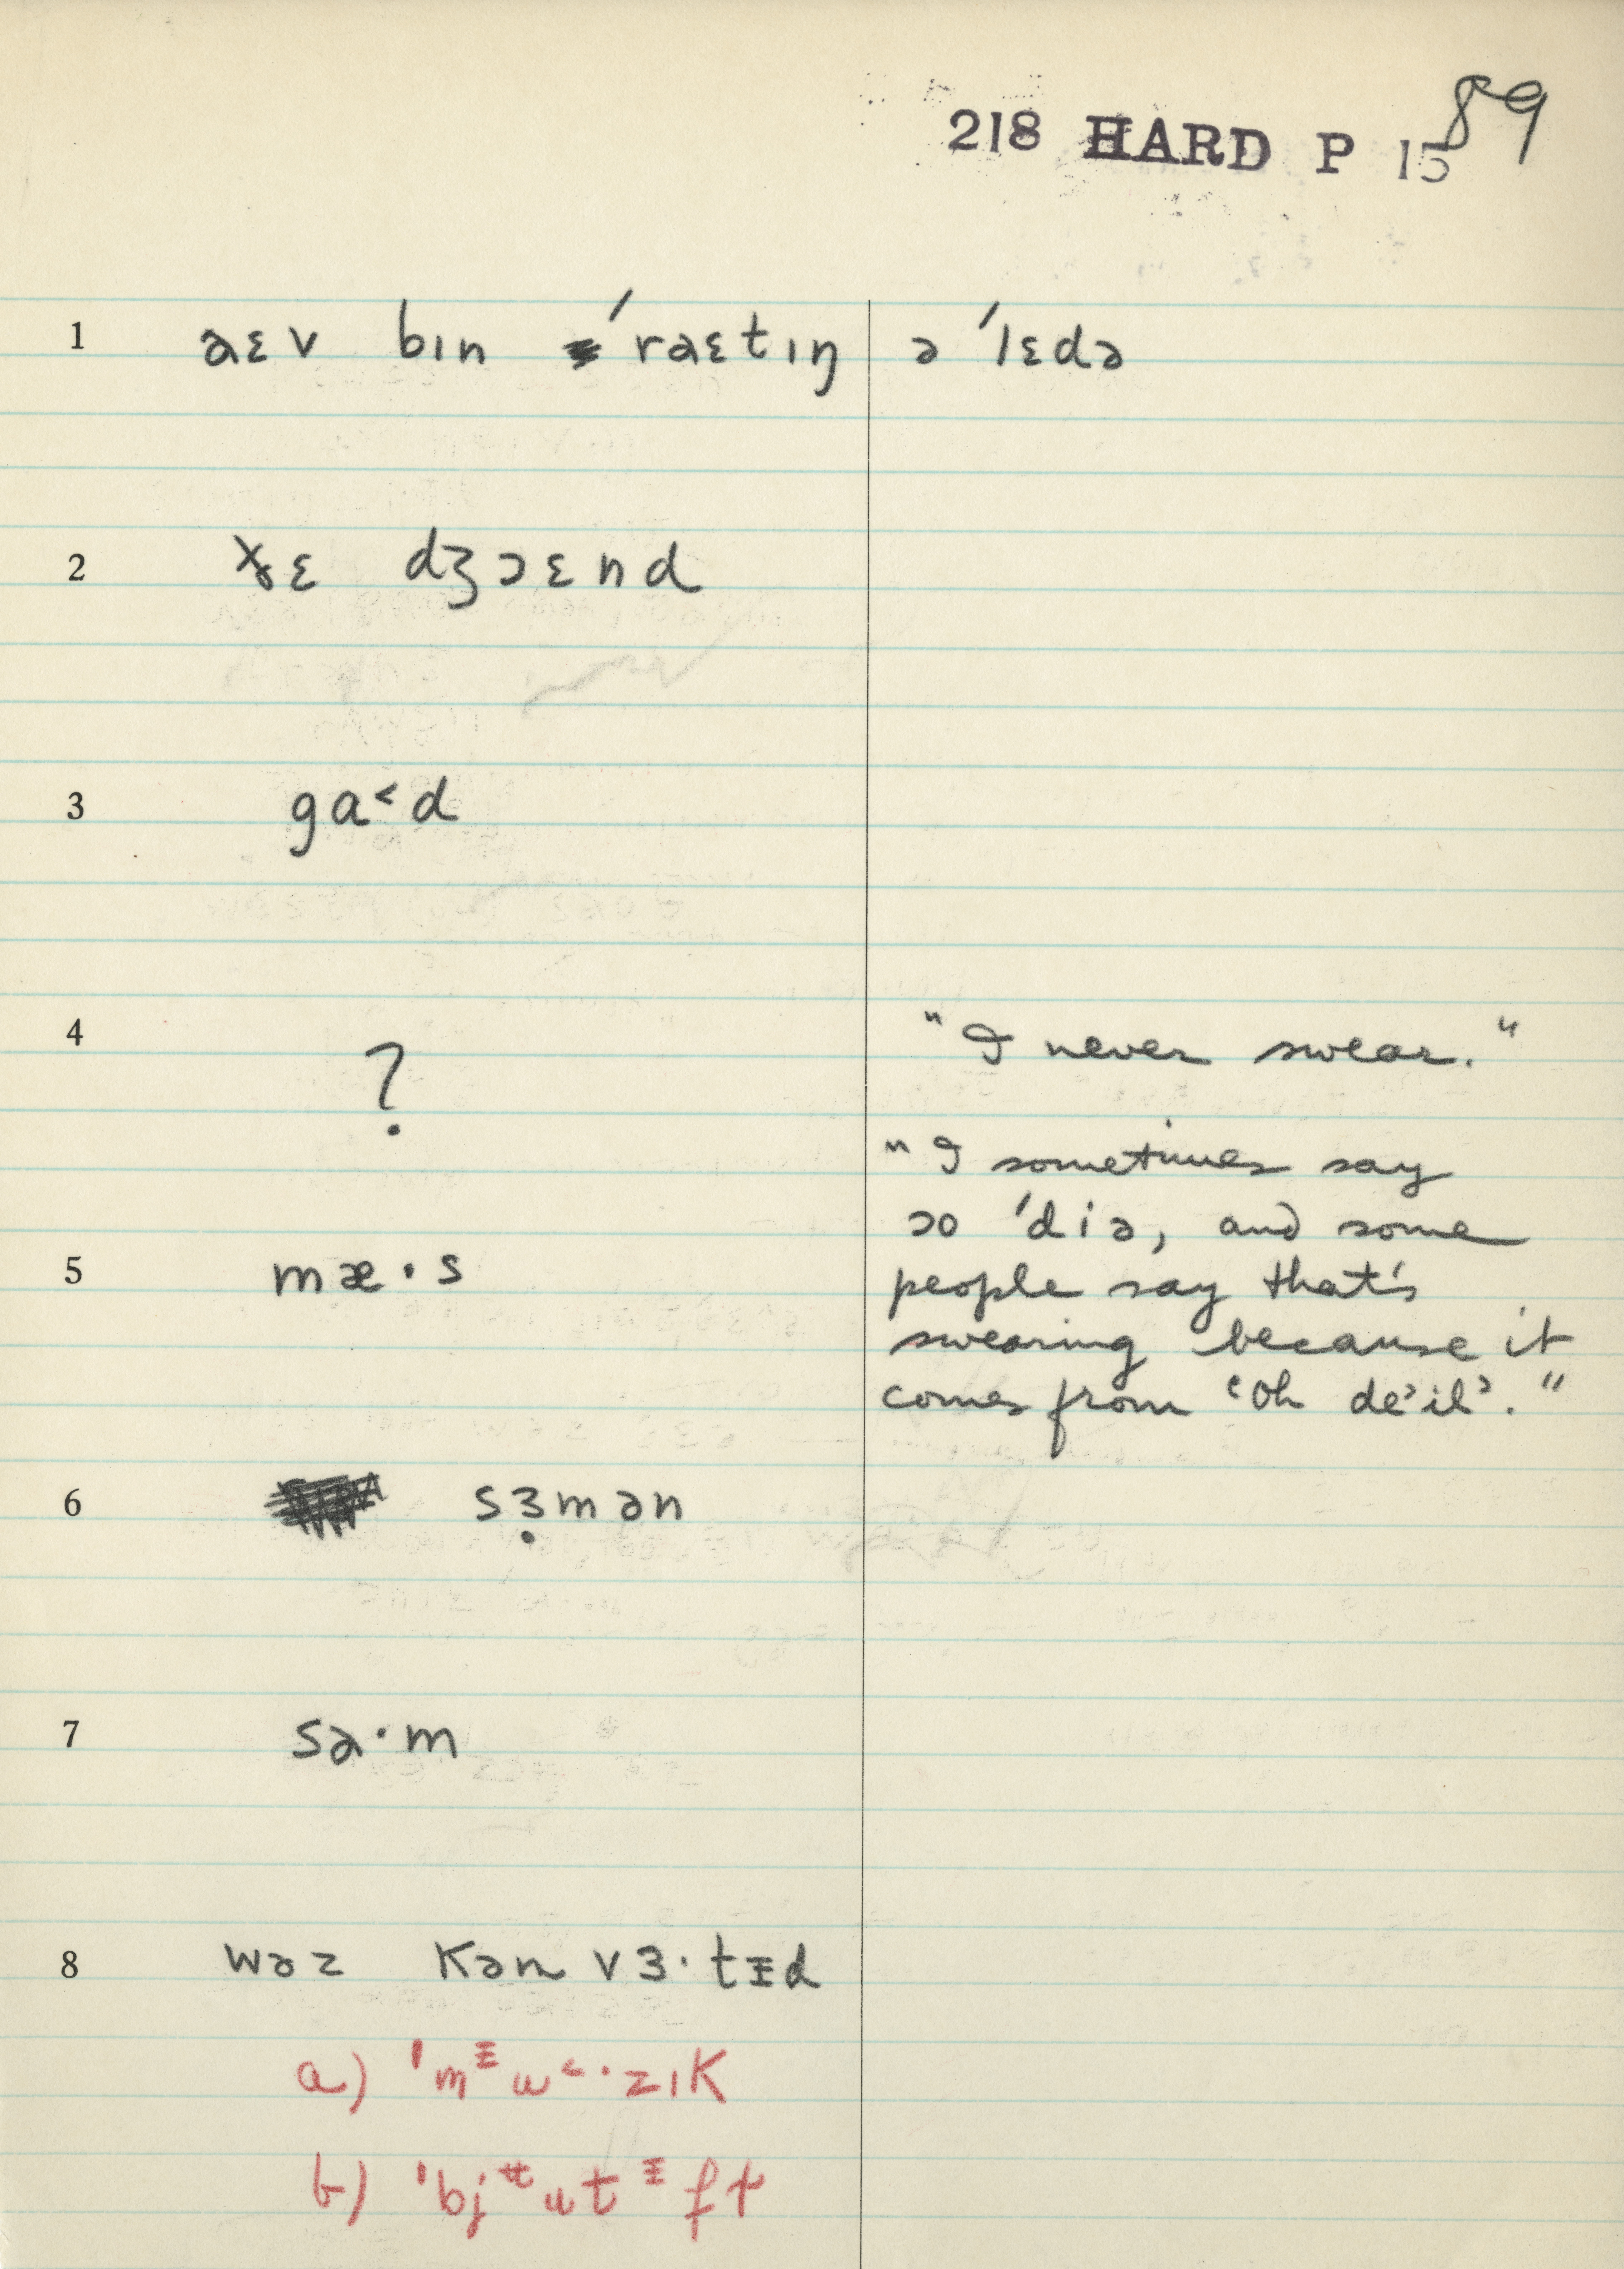 218 HARD P 15
89
1 aɛv bɪn ˈraɛtɪŋ ə ˈlɛdə
2 ɤɛ dʒɔɛnd
3 ga˂d
4 ? "I never swear."
"I sometimes say
ɔo ˈdiə, and some
5 mæ·s people say that's
swearing because it
comes from 'Oh de'il'."
6 sɜ̣mən
7 sa·m
8 wəz kən vɜ·tɪd
a) ˈmᵻu˂·zɪk
b)